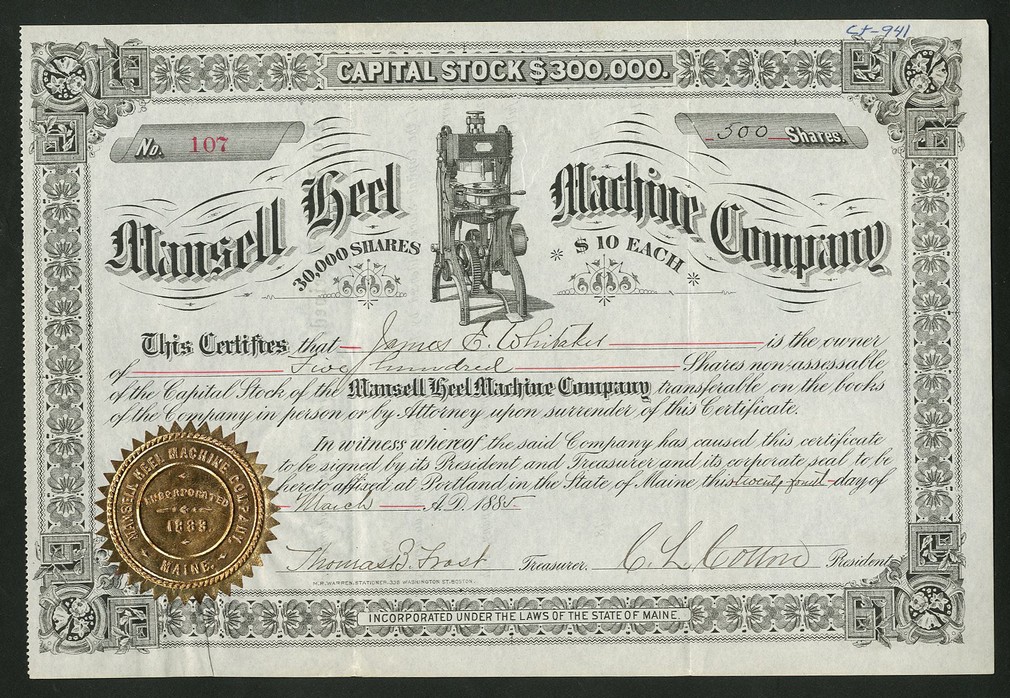 ct-941
CAPITAL STOCK $300,000.
No. 107
500 Shares.
Mansell Heel Machine Company
30,000 SHARES
$10 EACH
This Certifies that James E. Whitaker is the owner
of Five hundred Shares non-assessable
of the Capital Stock of the Mansell Heel Machine Company transferable on the books
of the Company in person or by Attorney upon surrender of this Certificate.
In witness whereof the said Company has caused this certificate
to be signed by its President and Treasurer and its corporate seal to be
hereto affixed at Portland in the State of Maine this twenty fourth day of
March A.D. 1885.
MANSELL HEEL MACHINE COMPANY.
INCORPORATED
1883.
MAINE.
Thomas B. Frost Treasurer. C. L. President
H.R. WARREN, STATIONER, 336 WASHINGTON ST. BOSTON.
INCORPORATED UNDER THE LAWS OF THE STATE OF MAINE.